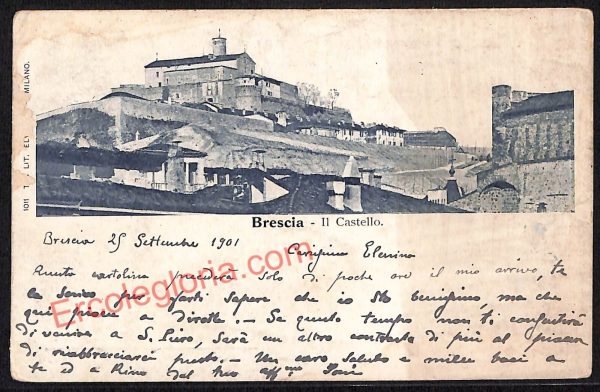 1011 T. LIT. EL MILANO.
Brescia - Il Castello.
Brescia 25 Settembre 1901
Carissima Elenina
Questa cartolina precederà solo di poche ore il mio arrivo, te
la scrivo per farti sapere che io sto benissimo, ma che
qui piove a dirotto. - Se questo tempo non ti consentirà
di venire a S. Piero, sarà un altro contrasto di più al piacer
di riabbracciarci presto. - Un caro saluto e mille baci a
te ed a Rina dal tuo aff.mo
Ercolegloria.com